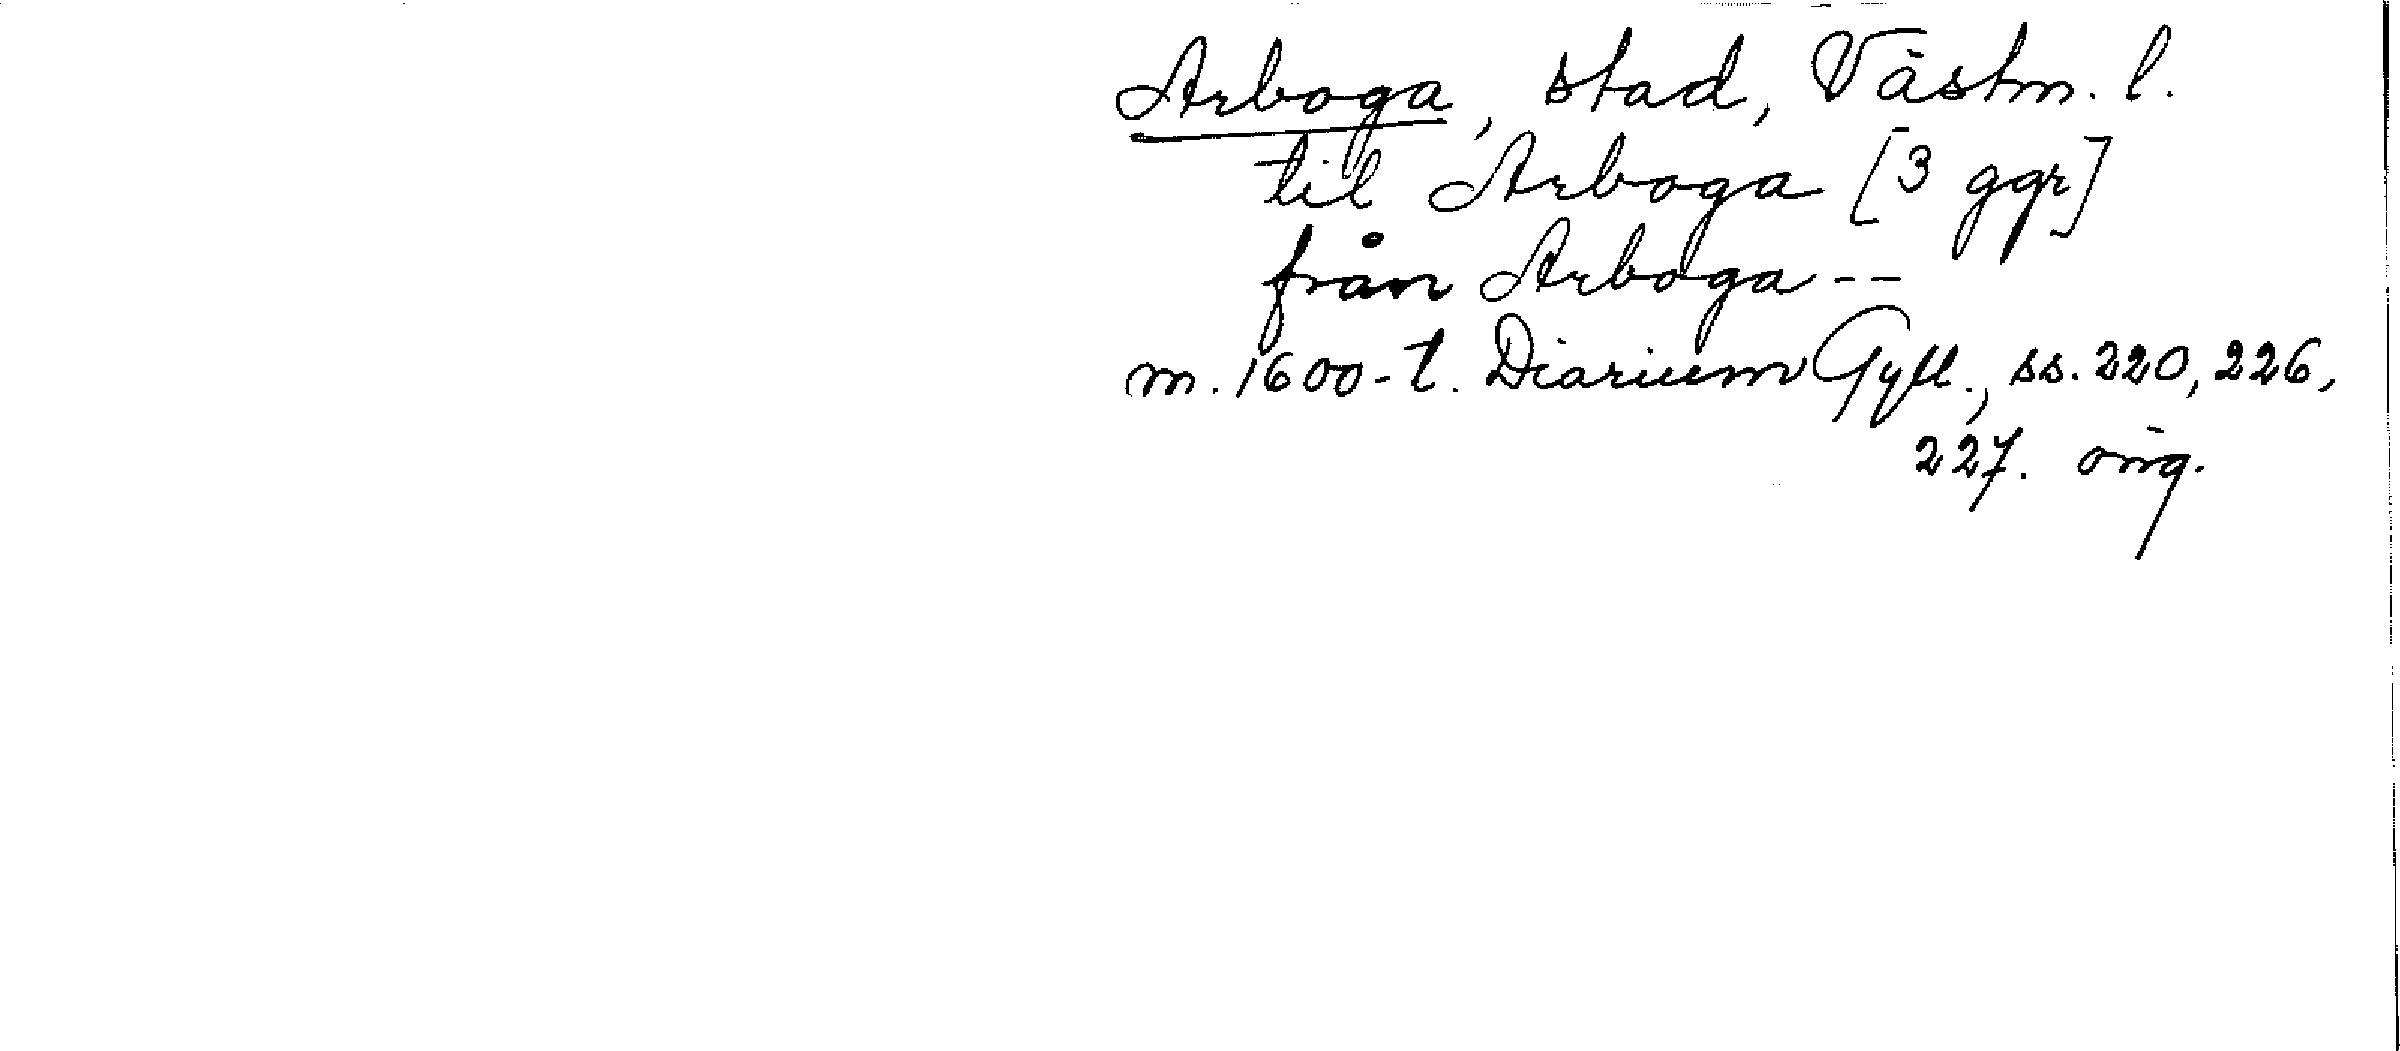 Arboga, stad, Västm. l.
til Arboga [3 ggr]
från Arboga --
m. 1600-t. Diarium Gyll., ss. 220, 226,
227. orig.